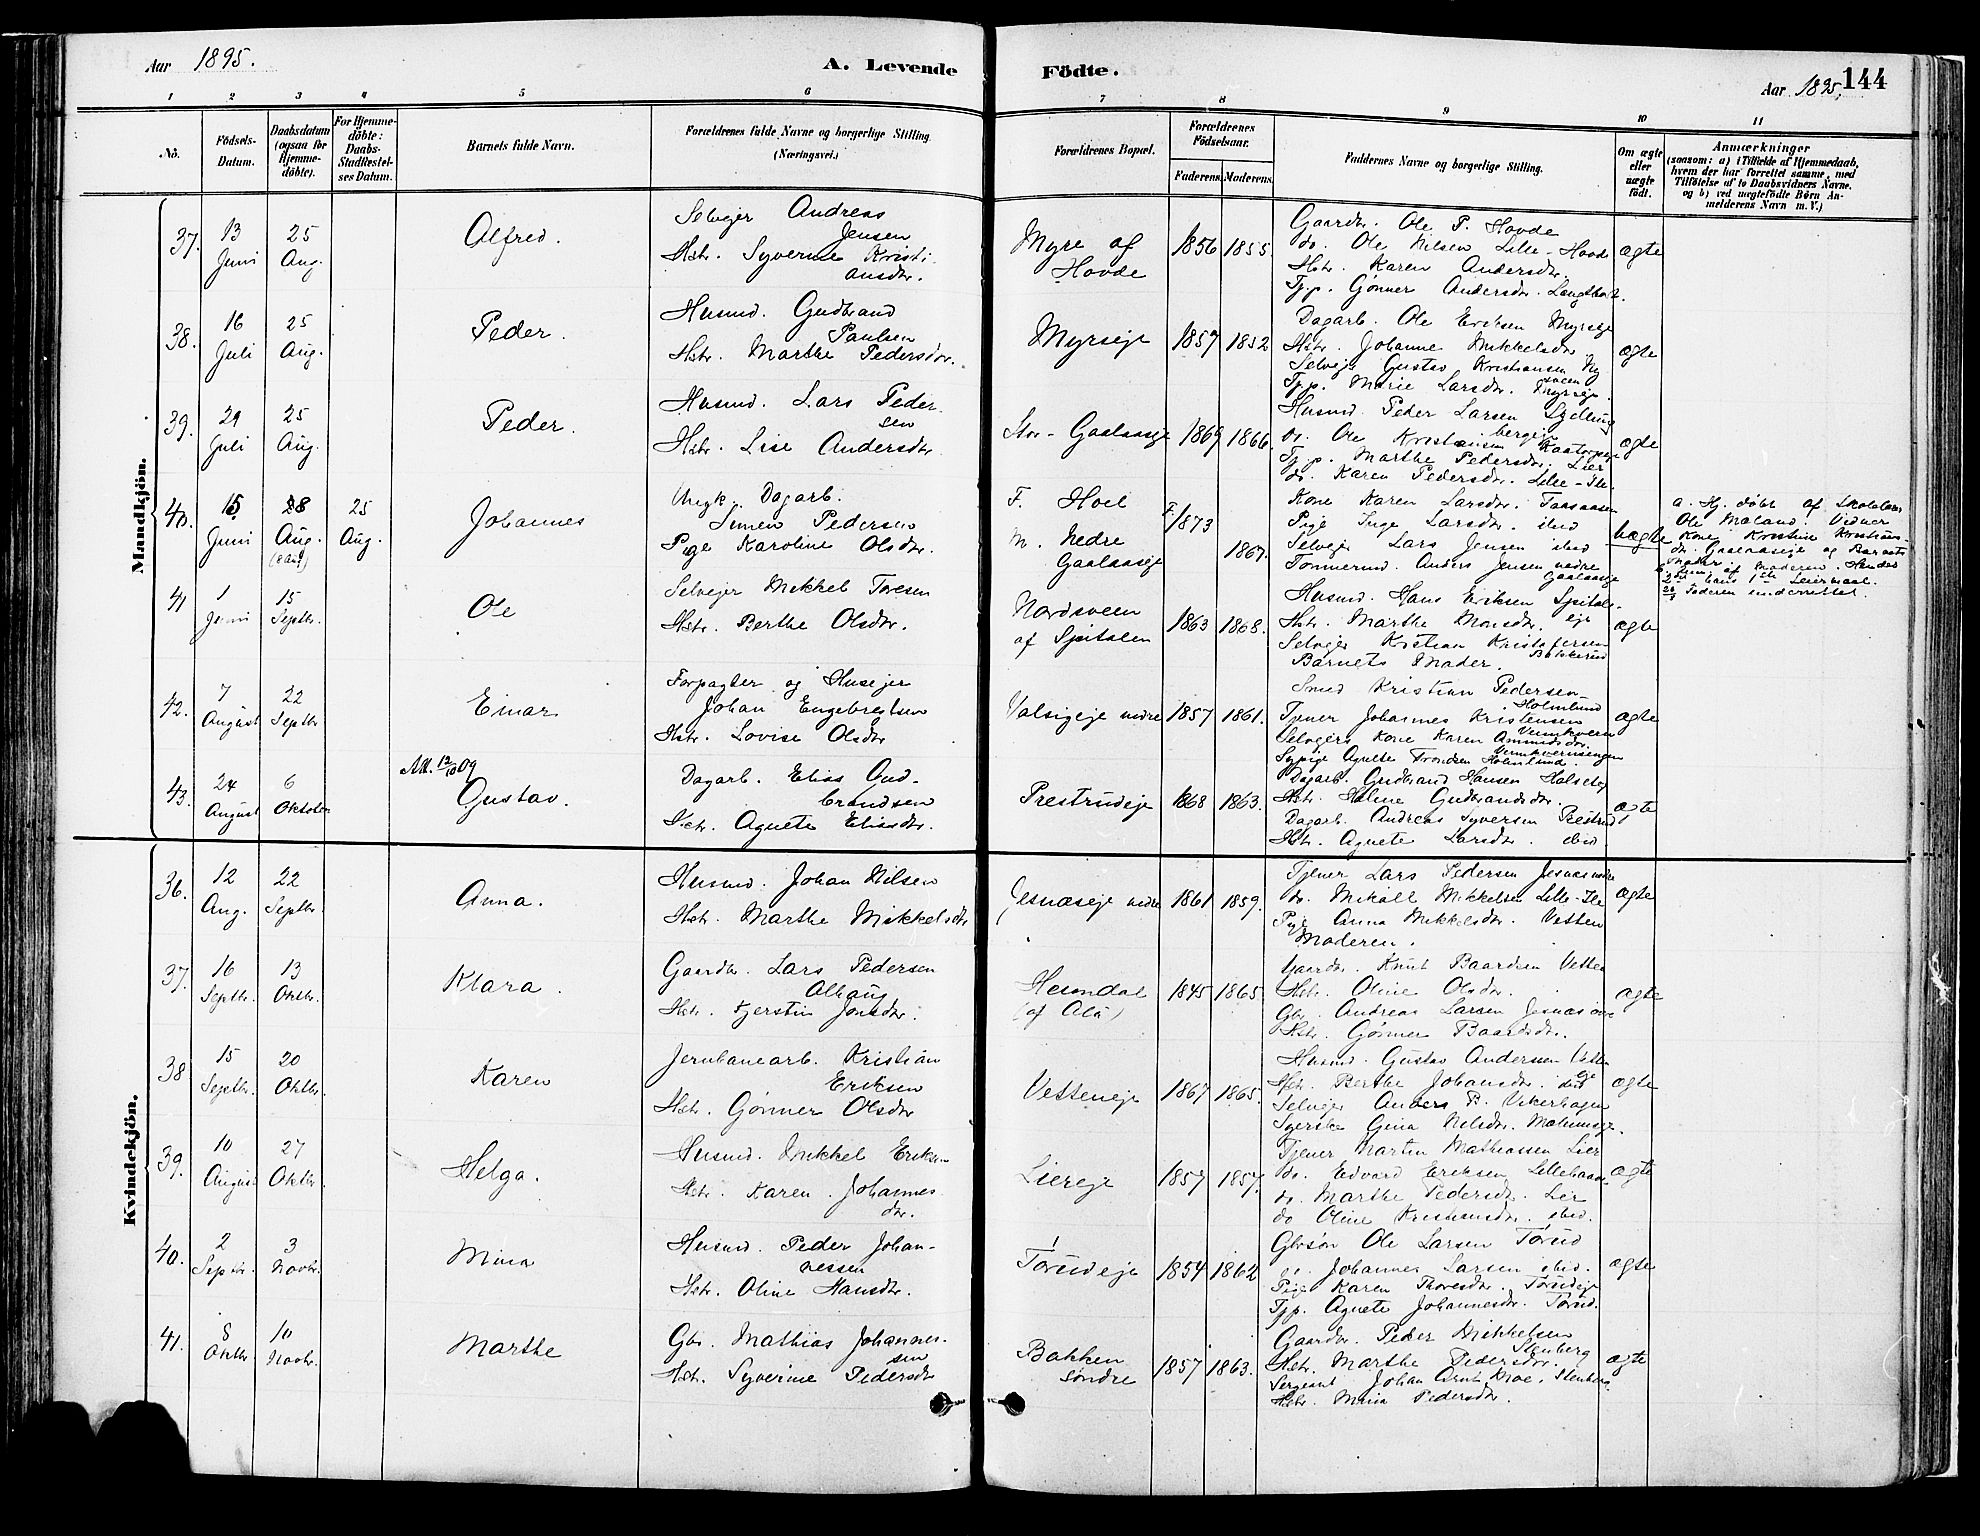 Aar 1895.
A. Levende
Födte.
Aar 1895.
144
1 2 3 4 5 6 7 8 9 10 11
No.
Födsels-
Datum.
Daabsdatum
(ogsaa for
Hjemme-
döbte).
For Hjemme-
döbte:
Daabs-
Stadfæstel-
ses Datum.
Barnets fulde Navn.
Forældrenes fulde Navne og borgerlige Stilling
(Næringsvei.)
Forældrenes Bopæl.
Forældrenes
Födselsaar.
Faderens. Moderens.
Faddernes Navne og borgerlige Stilling.
Om ægte
eller
uægte
födt.
Anmærkninger
(saasom: a) i Tilfælde af Hjemmedaab,
hvem der har forrettet samme, med
Tilföielse af to Daabsvidners Navne,
og b) ved uægtefödte Börn An-
melderens Navn m. V.)
Mandkjön.
37. 13 Juni 25 Aug. Alfred.
Selvejer Andreas
Jensen
Hstr. Syverine Kristi-
ansdtr.
Myre af
Hovde
1856 1855.
Gaardbr. Ole P. Hovde
do. Ole Nilsen Lille-Hovde
Hstr. Karen Andersdtr.
Tjp. Gønner Andersdtr.
ægte
38. 16 Juli 25 Aug. Peder.
Husmd. Gudbrand
Paulsen
Hstr. Marthe Pedersdtr.
Myrseje 1857 1852
Dagarb. Ole Eriksen Myrseje
Hstr. Johanne Mikkelsdtr
Selvejer Gustav Kristiansen
Tjp. Marie Larsdtr. Myrseje.
ægte
39. 29 Juli 25 Aug. Peder.
Husmd. Lars Peder-
sen
Hstr. Lise Andersdtr.
Stor-Gaalaaseje 1869 1866.
Husmd. Peder Larsen
do. Ole Kristiansen
Tjp. Marthe Pedersdtr. Lier
do. Karen Pedersdtr. Lille-Ile.
ægte
40. 15 Juni 28 Aug. 25 Aug. Johannes
Ungk. Dagarb.
Simen Pedersen
Pige Karoline Olsdtr.
F. Hoel
M. Nedre
Gaalaaseje
F. 1873
1867.
Kone Karen Larsdtr.
Pige Inge Larsdtr. ibid
Selvejer Lars Jensen ibid
Tømmermd. Anders Jensen nedre
Gaalaaseje
uægte
a. Hj. døbt af Skolelærer
Ole Moland. Vidner
Kone Kristine Kristians-
dtr. Gaalaaseje og Barnets
Moder
41 1 Juni 15 Septbr. Ole
Selvejer Mikkel Toresen
Hstr. Berthe Olsdtr.
Nordsveen
af Spitalen
1863 1868.
Husmd. Hans Eriksen Spital-
eje
Hstr. Marthe Monsdtr.
Selvejer Kristian Kristofersen
Barnets Moder.
ægte
42. 7 August 22 Septbr Einar
Forpagter og Husejer
Johan Engebretsen
Hstr. Lovise Olsdtr
Valsigeje nedre 1857 1861.
Smed Kristian Pedersen
Holmlund
Tjener Johannes Kristensen
Selvejers Kone Karen Amundsdtr.
Sypige Agnethe Trondsen Holmlund.
ægte
43. 24 August 6 Oktober
Att. 12/10 09
Gustav.
Dagarb. Elias Gud-
brandsen
Hstr. Agnete Eliasdtr.
Prestrudeje 1868 1863.
Dagarb. Gudbrand Hansen
Hstr. Helene Gudbrandsdtr.
Dagarb. Andreas Syversen Prestrud
Hstr. Agnete Larsdtr. ibid
ægte
Kvindekjön.
36. 12 Aug. 22 Septbr. Anna.
Husmd. Johan Nilsen
Hstr. Marthe Mikkelsdtr
Jesnæseje nedre 1861 1859.
Tjener Lars Pedersen Jesnæs nedre
do. Mikall Mikkelsen Lille-Ile
Pige Anna Mikkelsdtr. Vetten
Moderen.
ægte
37. 16 Septbr. 13 Oktbr. Klara.
Gaardbr. Lars Pedersen
Alhaug
Hstr. Kjerstin Jonsdtr.
Hemdal
(af Alu)
1845 1865
Gaardbr. Knut Baardsen Vetten
Hstr. Oline Olsdtr.
Gbr. Andreas Larsen Jesnæs
Hstr. Gønner Baardsdtr.
ægte
38 15 Septbr. 20 Oktbr. Karen
Jernbanearb. Kristian
Eriksen
Hstr. Gønner Olsdtr
Vetteneje 1867 1865.
Husmd. Gustav Andersen Vetten
eje
Hstr. Berthe Johansdtr. ibid
Selvejer Anders P. Vikerhagen
Syerske Gina Nilsdtr.
ægte
39. 10 August 27 Oktbr. Helga.
Husmd. Mikkel Eriksen
Hstr. Karen Johannes-
dtr.
Liereje 1857 1857.
Tjener Martin Mathiassen Lier
do. Edvard Eriksen
do. Marthe Pedersdtr. Lier
do Oline Kristiansdtr. ibid.
ægte
40. 2 Septbr. 3 Novbr. Mina
Husmd. Peder Johan-
nessen
Hstr. Oline Hansdtr.
Torudeje 1854 1862
Gbrsøn Ole Larsen Torud
do. Johannes Larsen ibid.
Pige Karen Thoresdtr. Torudeje
Tjp. Agnete Johannesdtr. Torud.
ægte
41. 8 Oktbr 10 Novbr. Marthe
Gbr. Mathias Johannes-
sen
Hstr. Syverine Pedersdtr
Bakken
søndre
1857 1863.
Gaardbr. Peder Mikkelsen
Stenberg
Hstr. Marthe Pedersdtr.
Sergeant Johan Arnt Moe, Stenberg
Hstr. Mina Pedersdtr.
ægte